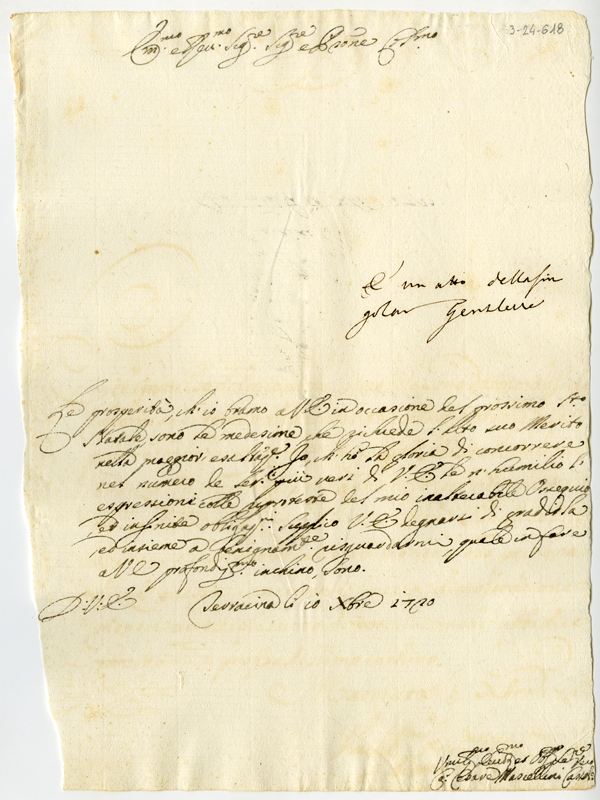 3-24-618
Ill.mo e Rev. Sig.re Sig.re e Prone Col.mo
E' un atto della sin
golar Gentilezza
Le prosperità, ch'io bramo a V.E. in occasione del prossimo S.to
Natale sono le medesime che richiede l'alto suo Merito
nella maggior esaltaz.e Io, ch'hò la gloria di concorrere
nel numero de ser.ri più veri di V.E. le n'humilio l'
espressioni colle riprove del mio inalterabile Ossequio
ed infinite obligaz.ni Supplico V.E. degnarsi di gradirla
ed insieme a benignam.te risguardarmi, quale in fare
a V.E. profondiss.mo inchino, sono.
D. V. E. Terracina li 10 Xbre 1720
Cesare Marcellini